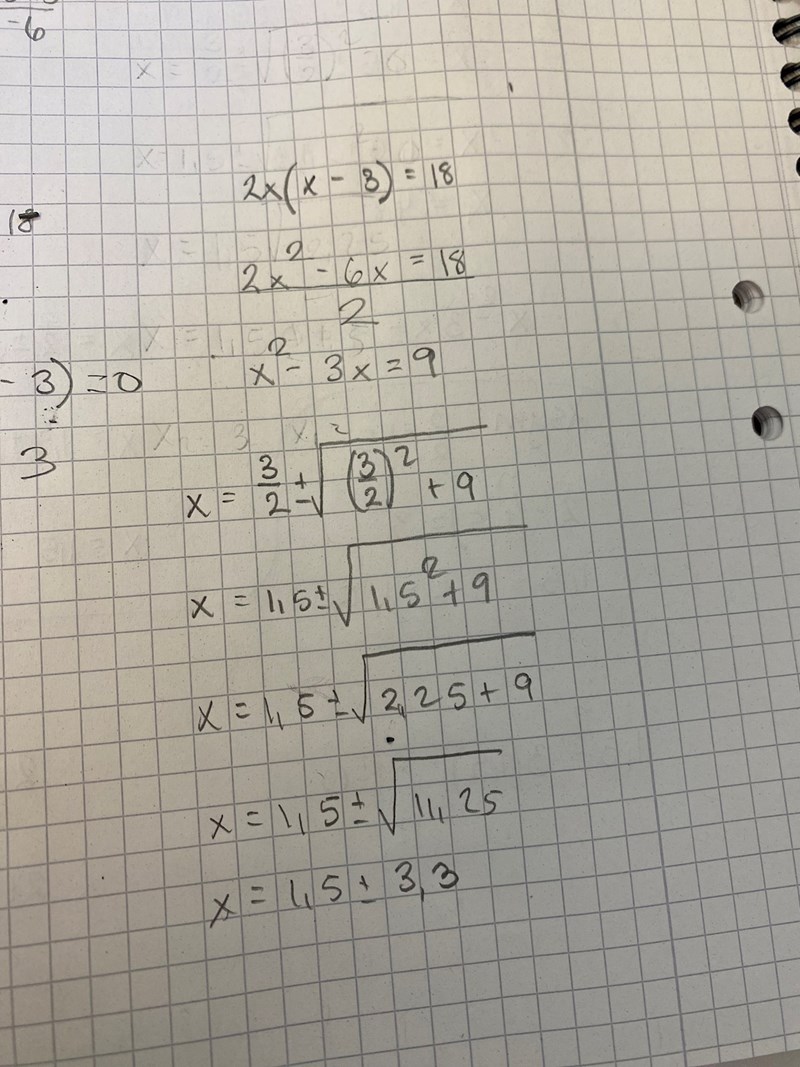 -6
2x(x - 3) = 18
18
2x² - 6x = 18
2
x² - 3x = 9
- 3) = 0
3
x = 3/2 ± √((3/2)² + 9)
x = 1,5 ± √(1,5² + 9)
x = 1,5 ± √(2,25 + 9)
x = 1,5 ± √11,25
x = 1,5 ± 3,3